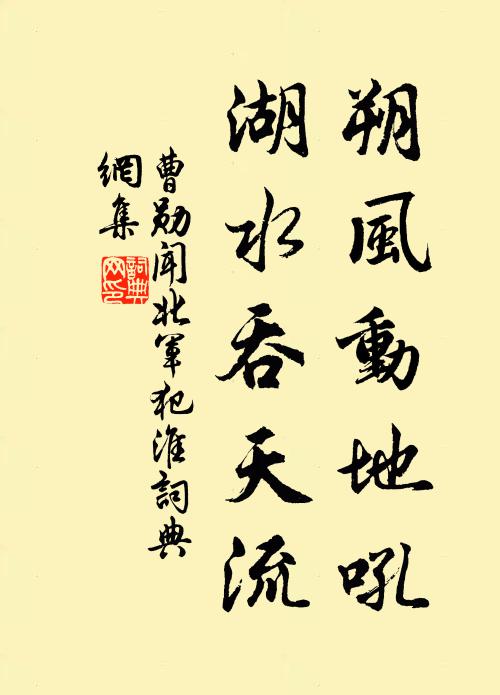 朔風動地吼
湖水吞天流
曹勛聞北軍犯淮詞典
網集
詞典網印